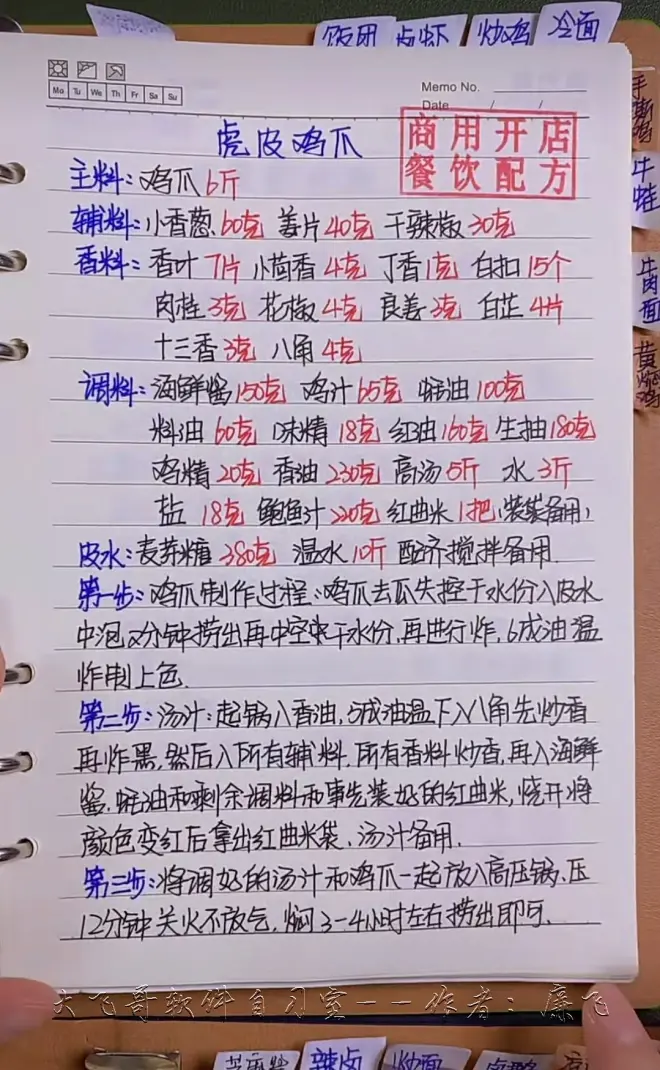 饭团 卤虾 炒鸡 冷面
Memo No.
Mo Tu We Th Fr Sa Su
Date / /
虎皮鸡爪
商用开店
餐饮配方
手撕鸡
牛蛙
牛肉面
黄焖鸡
主料:鸡爪6斤
辅料:小香葱60克 姜片40克 干辣椒30克
香料:香叶7片 小茴香4克 丁香1克 白扣15个
肉桂3克 花椒4克 良姜3克 白芷4片
十三香3克 八角4克
调料:海鲜酱150克 鸡汁65克 蚝油100克
料油60克 味精18克 红油160克 生抽180克
鸡精20克 香油230克 高汤5斤 水3斤
盐18克 鲍鱼汁220克 红曲米1把(装袋备用)
皮水:麦芽糖380克 温水10斤 配济搅拌备用.
第一步:鸡爪制作过程:鸡爪去瓜失控干水份入皮水
中泡2分钟捞出再中空夹干水份,再进行炸,6成油温
炸制上色.
第二步:汤汁:起锅入香油,5成油温下入八角先炒香
再炸黑,然后入所有辅料.所有香料炒香,再入海鲜
酱.蚝油和剩余调料和事先装好的红曲米,烧开将
颜色变红后拿出红曲米袋.汤汁备用.
第三步:将调好的汤汁和鸡爪一起放入高压锅.压
12分钟关火不放气,焖3-4小时左右捞出即可.
大飞哥软件自习室--作者:廉飞
辣卤 炒面